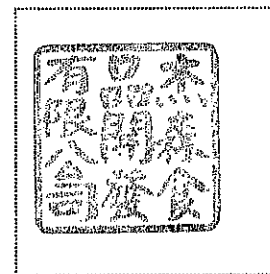 杰森食
品開發
有限公司